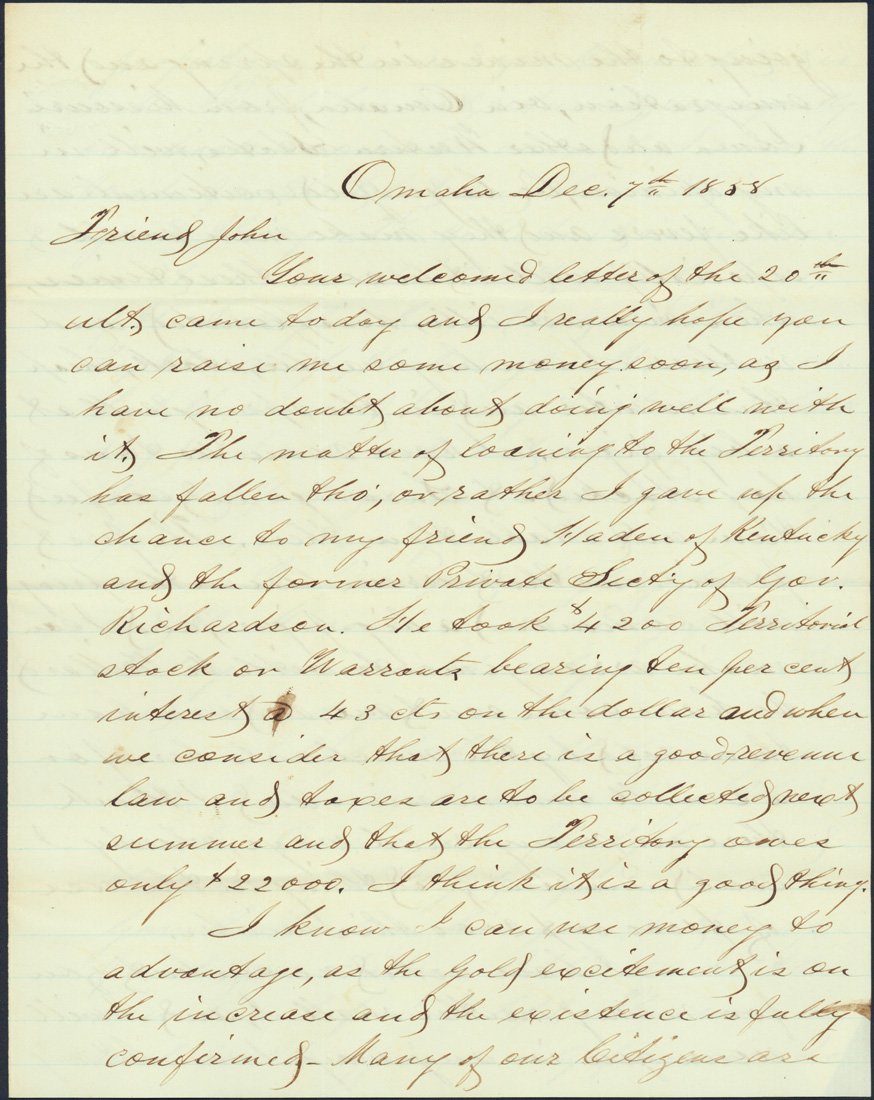 Omaha Dec. 7th 1858
Friend John
Your welcomed letter of the 20th
ult. came today and I really hope you
can raise me some money soon, as I
have no doubt about doing well with
it. The matter of loaning to the Territory
has fallen tho', or rather I gave up the
chance to my friend Haden of Kentucky
and the former Private Secty of Gov.
Richardson. He took $4200 Territorial
stock or Warrants bearing ten per cent
interest @ 43 cts on the dollar and when
we consider that there is a good revenue
law and taxes are to be collected next
summer and that the Territory owes
only $22000. I think it is a good thing.
I know I can use money to
advantage, as the Gold excitement is on
the increase and the existence is fully
confirmed - Many of our Citizens are